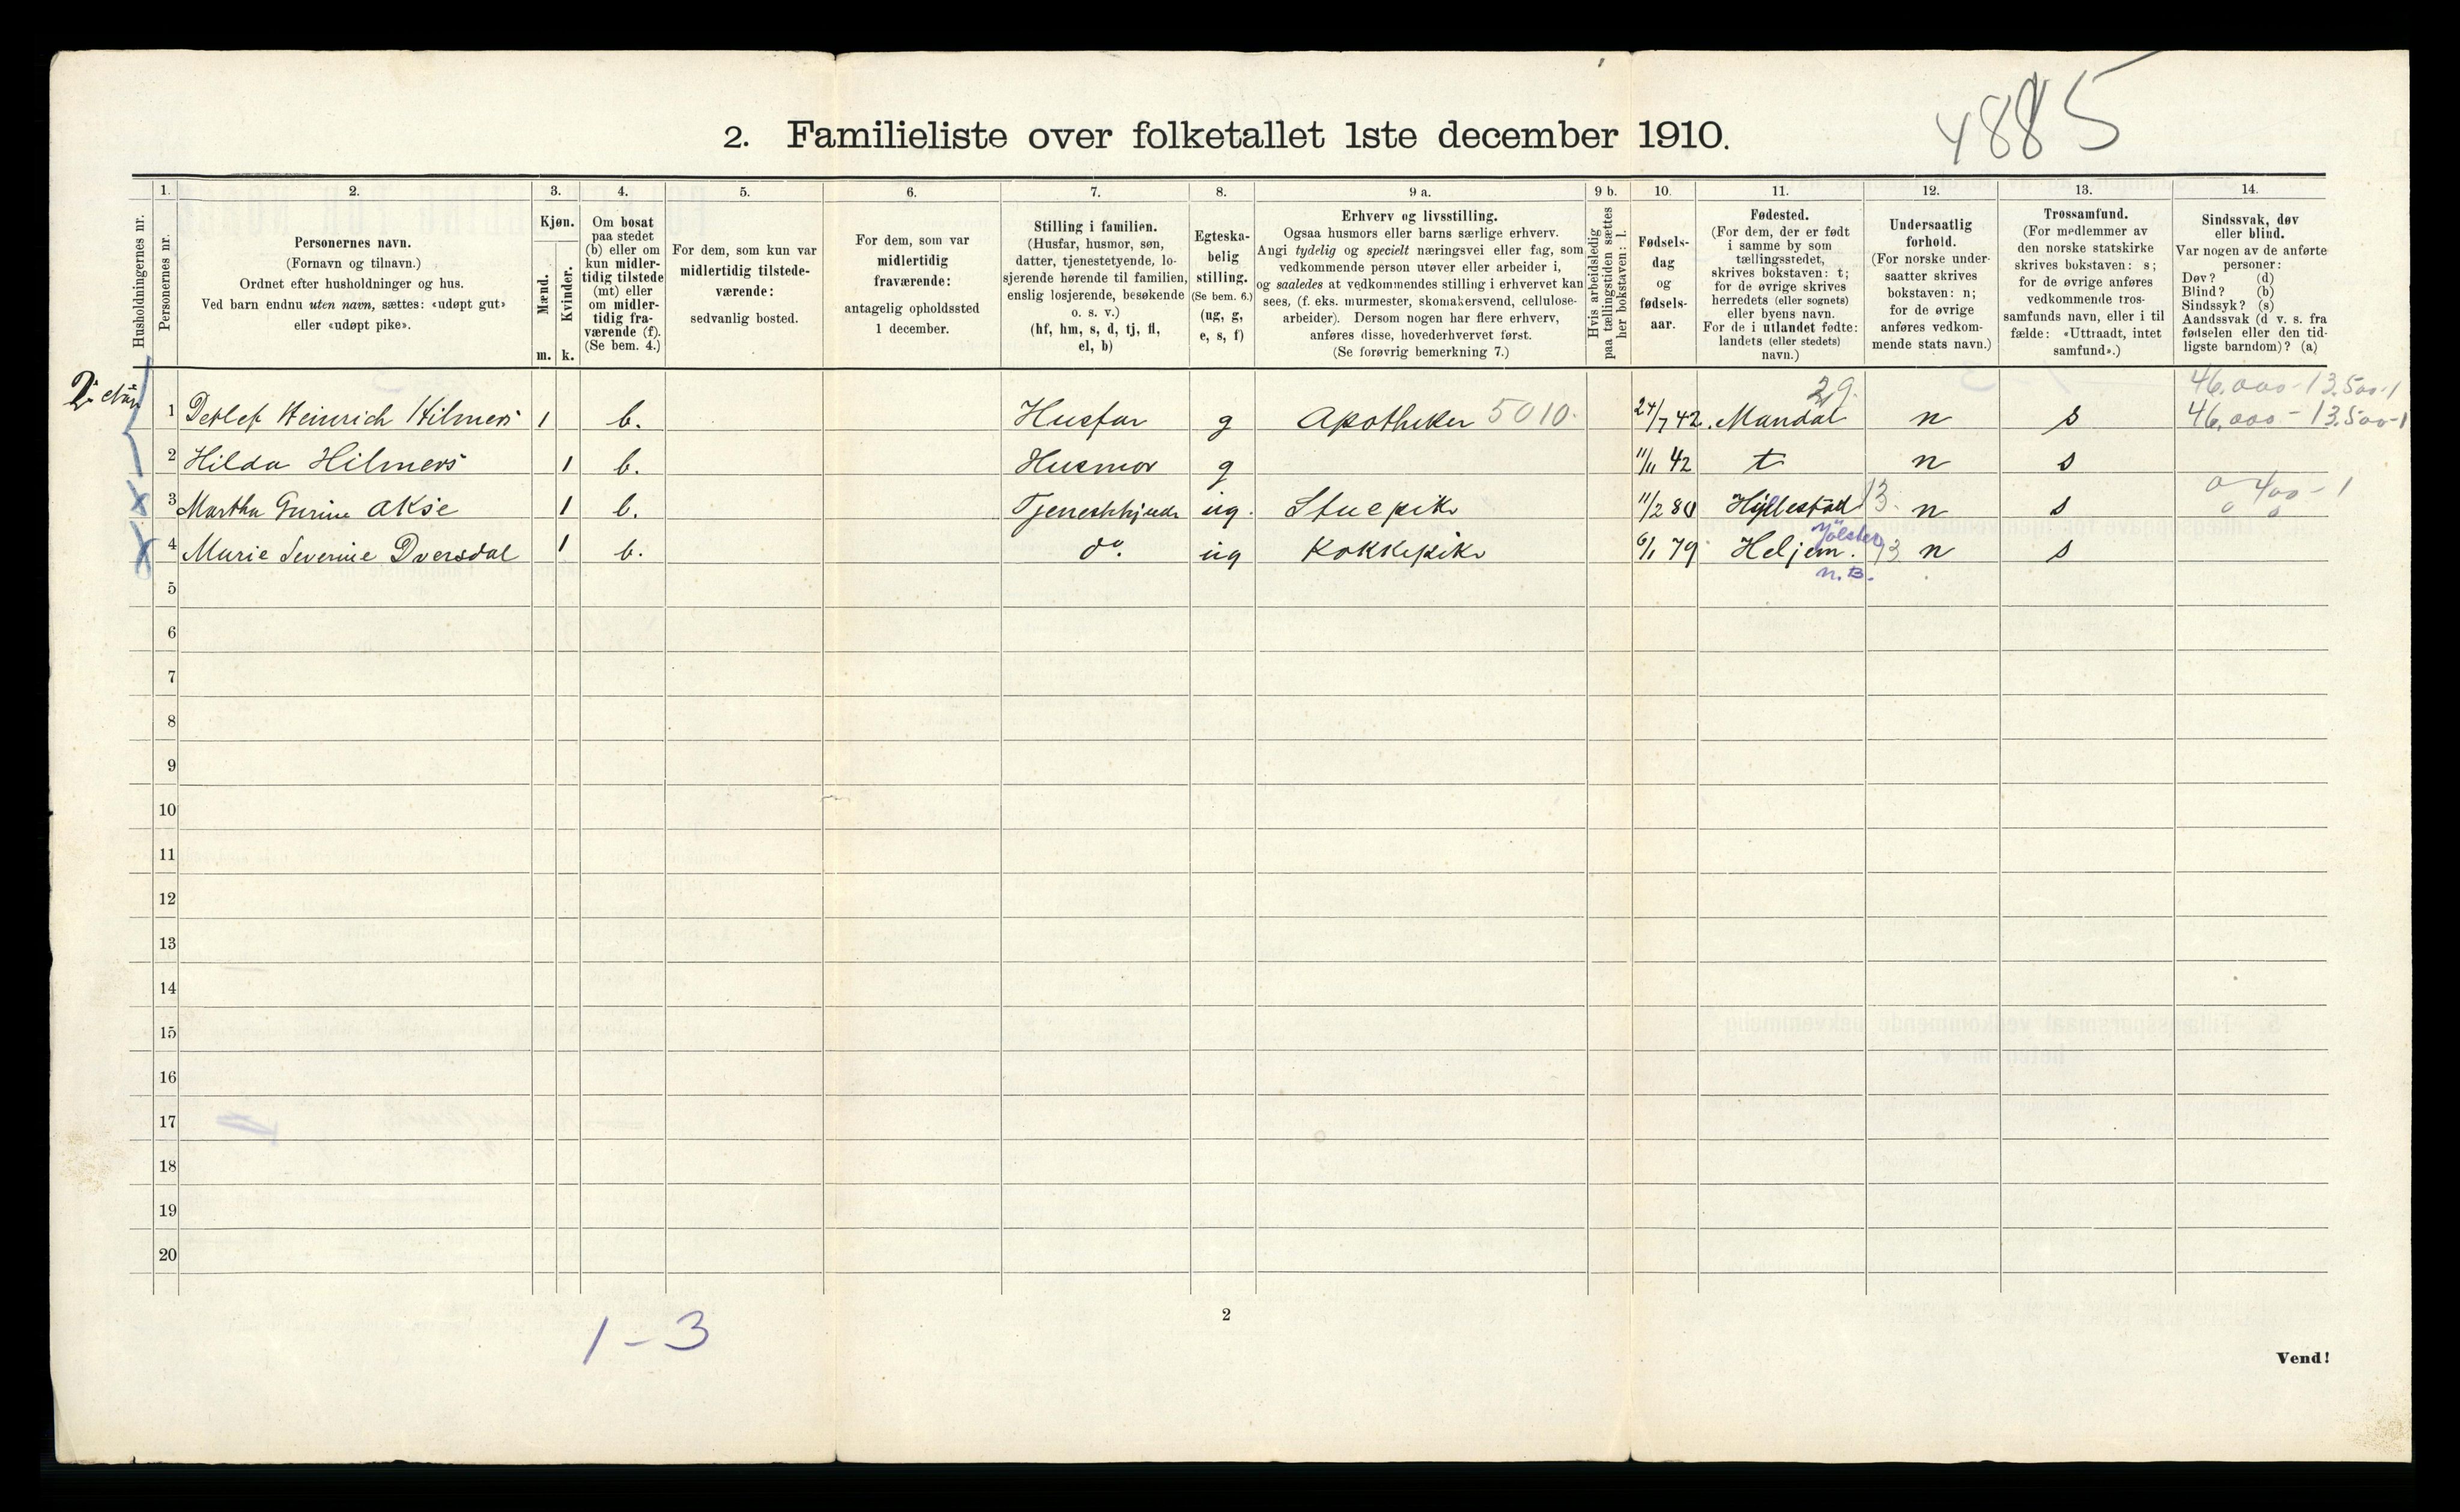 4885
2. Familieliste over folketallet 1ste december 1910.
Husholdningernes nr.
1. Personernes nr.
2. Personernes navn.
(Fornavn og tilnavn.)
Ordnet efter husholdninger og hus.
Ved barn endnu uten navn, sættes: «udøpt gut»
eller «udøpt pike».
3. Kjøn.
Mænd. m.
Kvinder. k.
4. Om bosat
paa stedet
(b) eller om
kun midler-
tidig tilstede
(mt) eller
om midler-
tidig fra-
værende (f).
(Se bem. 4.)
5. For dem, som kun var
midlertidig tilstede-
værende:
sedvanlig bosted.
6. For dem, som var
midlertidig
fraværende:
antagelig opholdssted
1 december.
7. Stilling i familien.
(Husfar, husmor, søn,
datter, tjenestetyende, lo-
sjerende hørende til familien,
enslig losjerende, besøkende
o. s. v.)
(hf, hm, s, d, tj, fl,
el, b)
8. Egteska-
belig
stilling.
(Se bem. 6.)
(ug, g,
e, s, f)
9 a. Erhverv og livsstilling.
Ogsaa husmors eller barns særlige erhverv.
Angi tydelig og specielt næringsvei eller fag, som
vedkommende person utøver eller arbeider i,
og saaledes at vedkommendes stilling i erhvervet kan
sees, (f. eks. murmester, skomakersvend, cellulose-
arbeider). Dersom nogen har flere erhverv,
anføres disse, hovederhvervet først.
(Se forøvrig bemerkning 7.)
9 b. Hvis arbeidsledig
paa tællingstiden sættes
her bokstaven: l.
10. Fødsels-
dag
og
fødsels-
aar.
11. Fødested.
(For dem, der er født
i samme by som
tællingsstedet,
skrives bokstaven: t;
for de øvrige skrives
herredets (eller sognets)
eller byens navn.
For de i utlandet fødte:
landets (eller stedets)
navn.)
12. Undersaatlig
forhold.
(For norske under-
saatter skrives
bokstaven: n;
for de øvrige
anføres vedkom-
mende stats navn.)
13. Trossamfund.
(For medlemmer av
den norske statskirke
skrives bokstaven: s;
for de øvrige anføres
vedkommende tros-
samfunds navn, eller i til
fælde: «Uttraadt, intet
samfund».)
14. Sindssvak, døv
eller blind.
Var nogen av de anførte
personer:
Døv? (d)
Blind? (b)
Sindssyk? (s)
Aandssvak (d v. s. fra
fødselen eller den tid-
ligste barndom)? (a)
29. 46.000-13.500-1
1 Detlef Heinrich Hilmers 1 b. Husfar g Apotheker 5010. 24/7 42. Mandal n s 46.000-13.500-1
2 Hilda Hilmers 1 b. Husmor g 11/11 42 t n s
0 400-1
3 Martha Gurine Akse 1 b. ug. Stuepike 11/2 80 Hyllestad 13. n s 0 0
Jölster
4 Marie Severine Dversdal 1 b. do. ug Kokkepike 6/1 79 Heljem. 13 n s
n. B.
5
6
7
8
9
10
11
12
13
14
15
16
17
18
19
20
1-3
2
Vend!